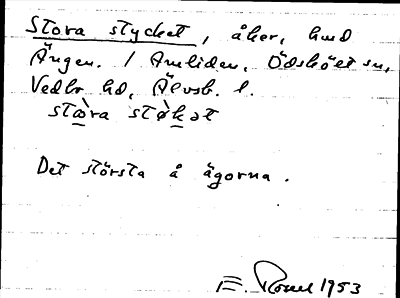 Stora stycket, åker, hmd
Ängen. / Amliden, Ödskölt sn,
Vedbo hd, Älvsb. l.
stæ̀ra stø̀kət
Det största å ägorna.
E. 1953